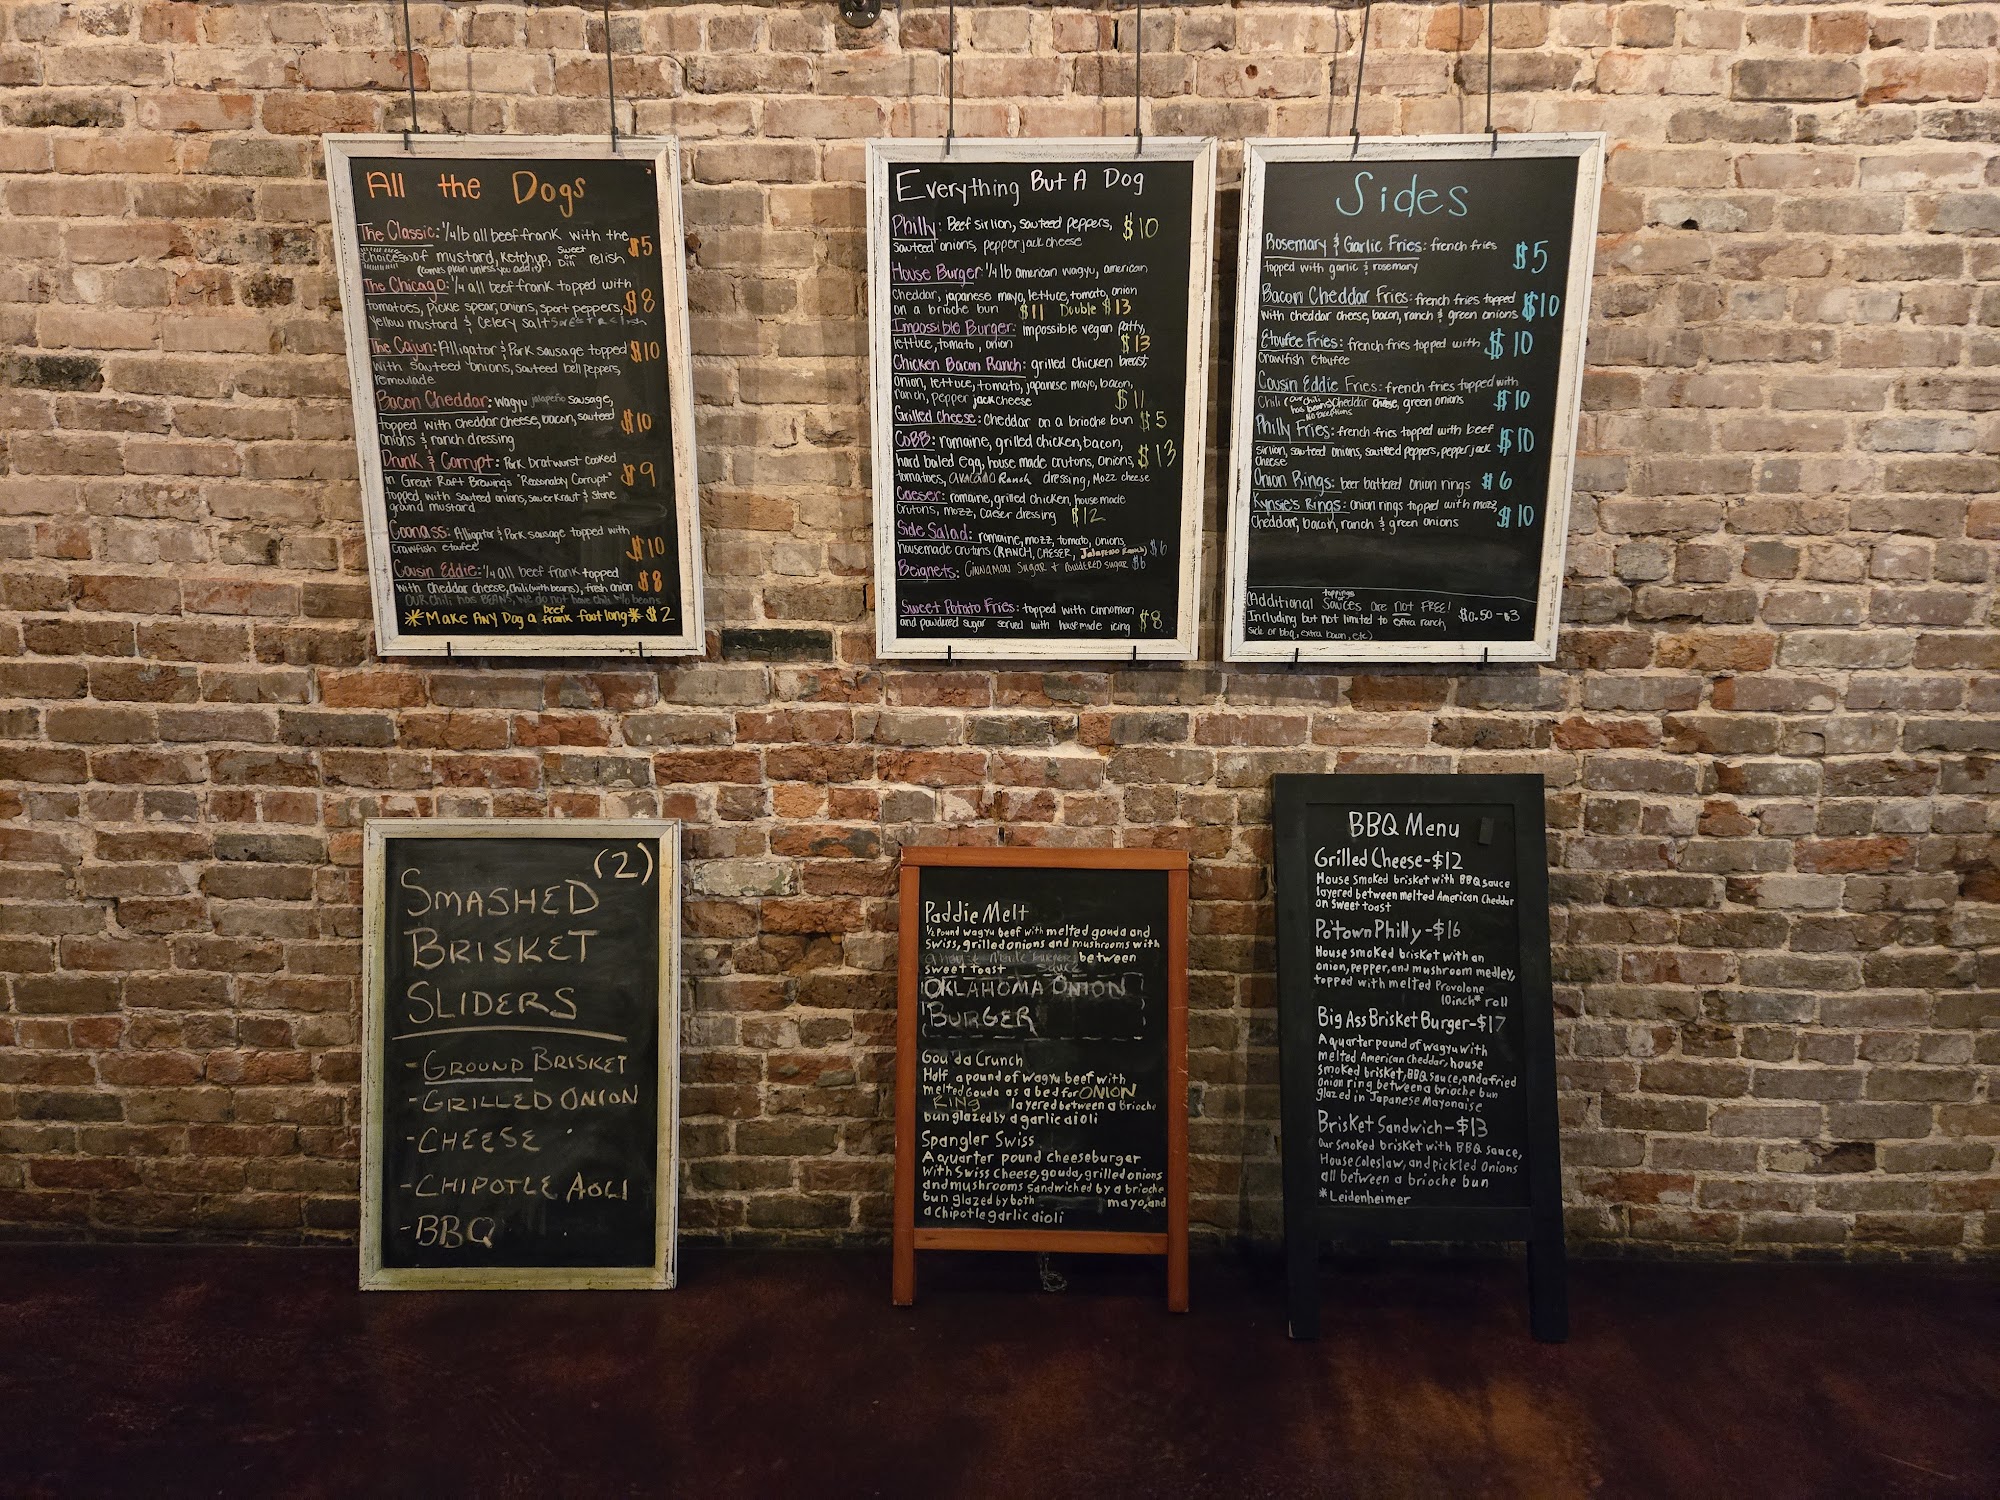 All the Dogs
The Classic: 1/4lb all beef frank with the $5
choices of mustard, ketchup, Sweet or Dill relish
(comes plain unless you add it)
The Chicago: 1/4 all beef frank topped with
tomatoes, pickle spear, onions, sport peppers, $8
yellow mustard & celery salt
The Cajun: Alligator & Pork sausage topped $10
with sauteed onions, sauteed bell peppers,
remoulade
Bacon Cheddar: wagyu jalapeño sausage,
topped with cheddar cheese, bacon, sauteed $10
onions & ranch dressing
Drunk & Corrupt: Pork bratwurst cooked
in Great Raft Brewing's "Reasonably Corrupt" $9
topped with sauteed onions, sauerkraut & stone
ground mustard
Coonass: Alligator & Pork sausage topped with
crawfish etoufee $10
Cousin Eddie: 1/4 all beef frank topped
with cheddar cheese, chili (with beans), fresh onion $8
OUR chili has BEANS, we do not have chili w/o beans
*Make ANY Dog a beef frank foot long* $2
Everything But A Dog
Philly: Beef sirlion, sauteed peppers, $10
sauteed onions, pepper jack cheese
House Burger: 1/4 lb american wagyu, american
cheddar, japanese mayo, lettuce, tomato, onion
on a brioche bun $11 Double $13
Impossible Burger: impossible vegan patty,
lettuce, tomato, onion $13
Chicken Bacon Ranch: grilled chicken breast,
onion, lettuce, tomato, japanese mayo, bacon,
ranch, pepper jack cheese $11
Grilled cheese: cheddar on a brioche bun $5
CoBB: romaine, grilled chicken, bacon,
hard boiled egg, house made crutons, onions, $13
tomatoes, avacado Ranch dressing, Mozz cheese
Caeser: romaine, grilled chicken, house made
crutons, mozz, caeser dressing $12
Side Salad: romaine, mozz, tomato, onions
housemade crutons (RANCH, CAESER, Jalapeno Ranch) $6
Beignets: Cinnamon Sugar + Powdered sugar $6
Sweet Potato Fries: topped with cinnamon
and powdered sugar served with house made icing $8
Sides
Rosemary & Garlic Fries: french fries $5
topped with garlic & rosemary
Bacon Cheddar Fries: french fries topped $10
with cheddar cheese, bacon, ranch & green onions
Etoufee Fries: french fries topped with $10
crawfish etoufee
Cousin Eddie Fries: french fries topped with
Chili (our chili has beans) cheddar cheese, green onions $10
No Exceptions
Philly Fries: french fries topped with beef $10
sirlion, sauteed onions, sauteed peppers, pepper jack
cheese
Onion Rings: beer battered onion rings $6
Kynsie's Rings: onion rings topped with mozz, $10
cheddar, bacon, ranch & green onions
(Additional toppings or Sauces are not FREE!
Including but not limited to extra ranch $0.50-$3
side or bbq, extra bacon, etc)
(2)
SMASHED
BRISKET
SLIDERS
- GROUND BRISKET
- GRILLED ONION
- CHEESE
- CHIPOTLE AOLI
- BBQ
Paddie Melt
1/2 Pound wagyu beef with melted gouda and
Swiss, grilled onions and mushrooms with
between
sweet toast sauce
OKLAHOMA ONION
BURGER
Gou'da Crunch
Half a pound of wagyu beef with
melted Gouda as a bed for ONION
RING layered between a Brioche
bun glazed by a garlic aioli
Spangler Swiss
A quarter pound cheeseburger
with Swiss Cheese, gouda, grilled onions
and mushrooms Sandwiched by a brioche
bun glazed by both mayo, and
a Chipotle garlic aioli
BBQ Menu
Grilled Cheese-$12
House Smoked brisket with BBQ sauce
layered between melted American Cheddar
on Sweet toast
Po'town Philly-$16
House smoked brisket with an
onion, pepper, and mushroom medley,
topped with melted Provolone
10inch* roll
Big Ass Brisket Burger-$17
A quarter pound of wagyu with
melted American Cheddar, house
smoked brisket, BBQ sauce, and a fried
Onion ring between a brioche bun
glazed in Japanese Mayonaise
Brisket Sandwich-$13
Our smoked brisket with BBQ sauce,
House Coleslaw, and pickled Onions
all between a brioche bun
*Leidenheimer